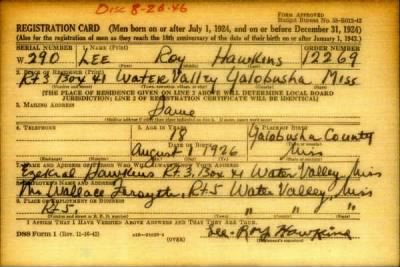 Disc 8-20-46
FORM APPROVED
Budget Bureau No. 33-R012-42
REGISTRATION CARD (Men born on or after July 1, 1924, and on or before December 31, 1924)
(Also for the registration of men as they reach the 18th anniversary of the date of their birth on or after January 1, 1943.)
SERIAL NUMBER 1. NAME ORDER NUMBER
W 290 LEE Roy Hawkins 12269
2. PLACE OF RESIDENCE
Rt 3, Box 41 Water Valley Yalobusha Miss
[THE PLACE OF RESIDENCE GIVEN ON LINE 2 ABOVE WILL DETERMINE LOCAL BOARD
JURISDICTION; LINE 2 OF REGISTRATION CERTIFICATE WILL BE IDENTICAL]
3. MAILING ADDRESS
Same
4. TELEPHONE 5. AGE IN YEARS 6. PLACE OF BIRTH
18 Yalobusha County
DATE OF BIRTH
August 1 1926 Miss
7. NAME AND ADDRESS OF PERSON WHO WILL ALWAYS KNOW YOUR ADDRESS
Ezekial Hawkins Rt 3, Box 41 Water Valley, Miss
8. EMPLOYER'S NAME AND ADDRESS
Mrs Wallace Forsythe, Rt 5 Water Valley, Miss
9. PLACE OF EMPLOYMENT OR BUSINESS
Rt 5 " " "
I AFFIRM THAT I HAVE VERIFIED ABOVE ANSWERS AND THAT THEY ARE TRUE.
DSS Form 1 (Rev. 11-16-42) (OVER) Lee Roy Hawkins